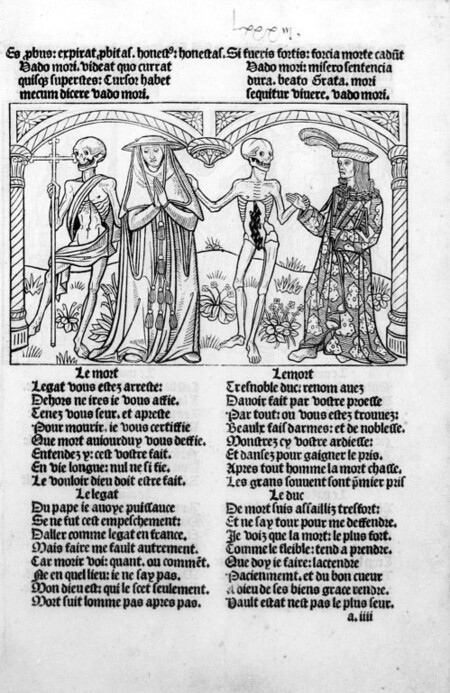 Es ꝓbus: expirat ꝓbitas. honestꝰ: honestas.
Vado mori. videat quo currat
quisqꝫ superstes: Cursor habet
mecum dicere vado mori.
Si fueris fortis: forcia morte cadūt
Vado mori: misero sentencia
dura. beato Grata. mori
sequitur vivere. vado mori.
Le mort
Legat vous estez arreste:
Dehors ne ires ie vous affie.
Tenez vous seur. et apreste
Pour mourir. ie vous certiffie
Que mort auiourduy vous deffie.
Entendez y: cest vostre fait.
En vie longue: nul ne si fie.
Le vouloir dieu doit estre fait.
Le legat
Du pape ie avoye puissauce
Se ne fut cest empeschement:
Daller comme legat en france.
Mais faire me fault autrement.
Car morir voi: quant. ou commēt.
Ne en quel lieu: ie ne say pas.
Mon dieu est: qui le scet seulement.
Mort suit lomme pas apres pas.
Lemort
Tresnoble duc: renom avez
Davoir fait par vostre proesse
Par tout: ou vous estez trouuez:
Beaulx fais darmes: et de noblesse.
Monstrez cy vostre ardiesse:
Et dansez pour gaigner le pris.
Apres tout homme la mort chasse.
Les grans souuent sont p̄mier pris
Le duc
De mort suis assailliz tresfort:
Et ne say tour pour me deffendre.
Je voiz que la mort: le plus fort.
Comme le fleible: tend a prendre.
Que doy ie faire: lactendre
Paciemment. et du bon cueur
A dieu de ses biens grace rendre.
Vault estat nest pas le plus seur.
a. iiii